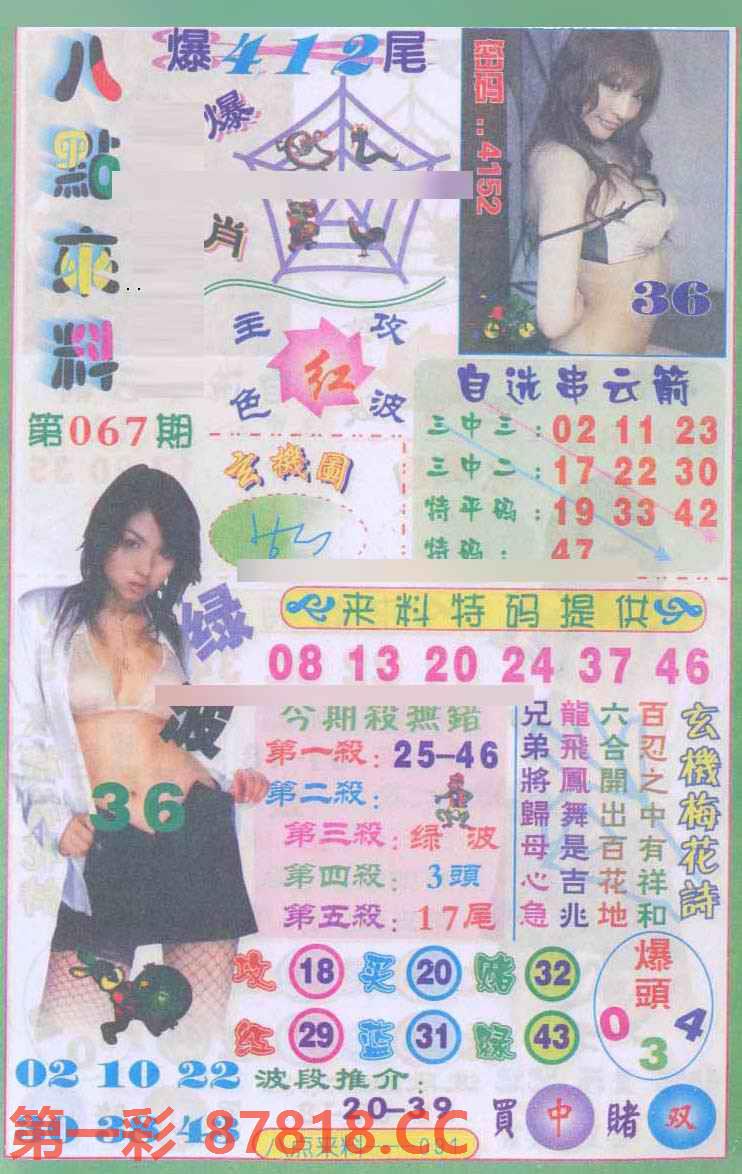 八點來料
爆412尾
爆
肖
4152
36
主攻
红
色波
自选串云箭
第067期
三中三:02 11 23
三中二:17 22 30
特平码:19 33 42
特码:47
玄機圖
绿波
36
来料特码提供
08 13 20 24 37 46
今期殺無錯
第一殺:25-46
第二殺:
第三殺:绿波
第四殺:3頭
第五殺:17尾
玄機梅花詩
百忍之中有祥和
六合開出百花地
龍飛鳳舞是吉兆
兄弟將歸母心急
攻 18 买 20 赌 32
红 29 蓝 31 绿 43
爆頭
0 3 4
02 10 22
38 48
波段推介:
20-39
買中賭双
第一彩 87818.CC